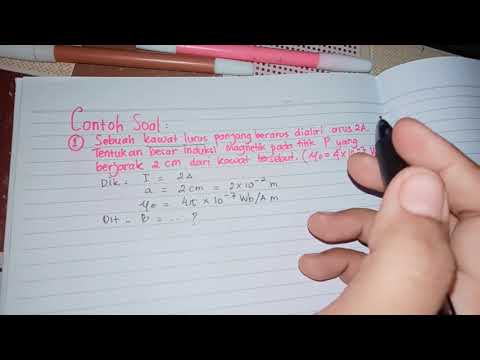 Contoh Soal :
① Sebuah kawat lurus panjang berarus dialiri arus 2A.
Tentukan besar induksi magnetik pada titik P yang
berjarak 2 cm dari kawat tersebut. (μo = 4 × 10⁻⁷
Dik = I = 2A
a = 2 cm = 2 × 10⁻² m
μo = 4π × 10⁻⁷ Wb/A m
Dit = B = ... ?